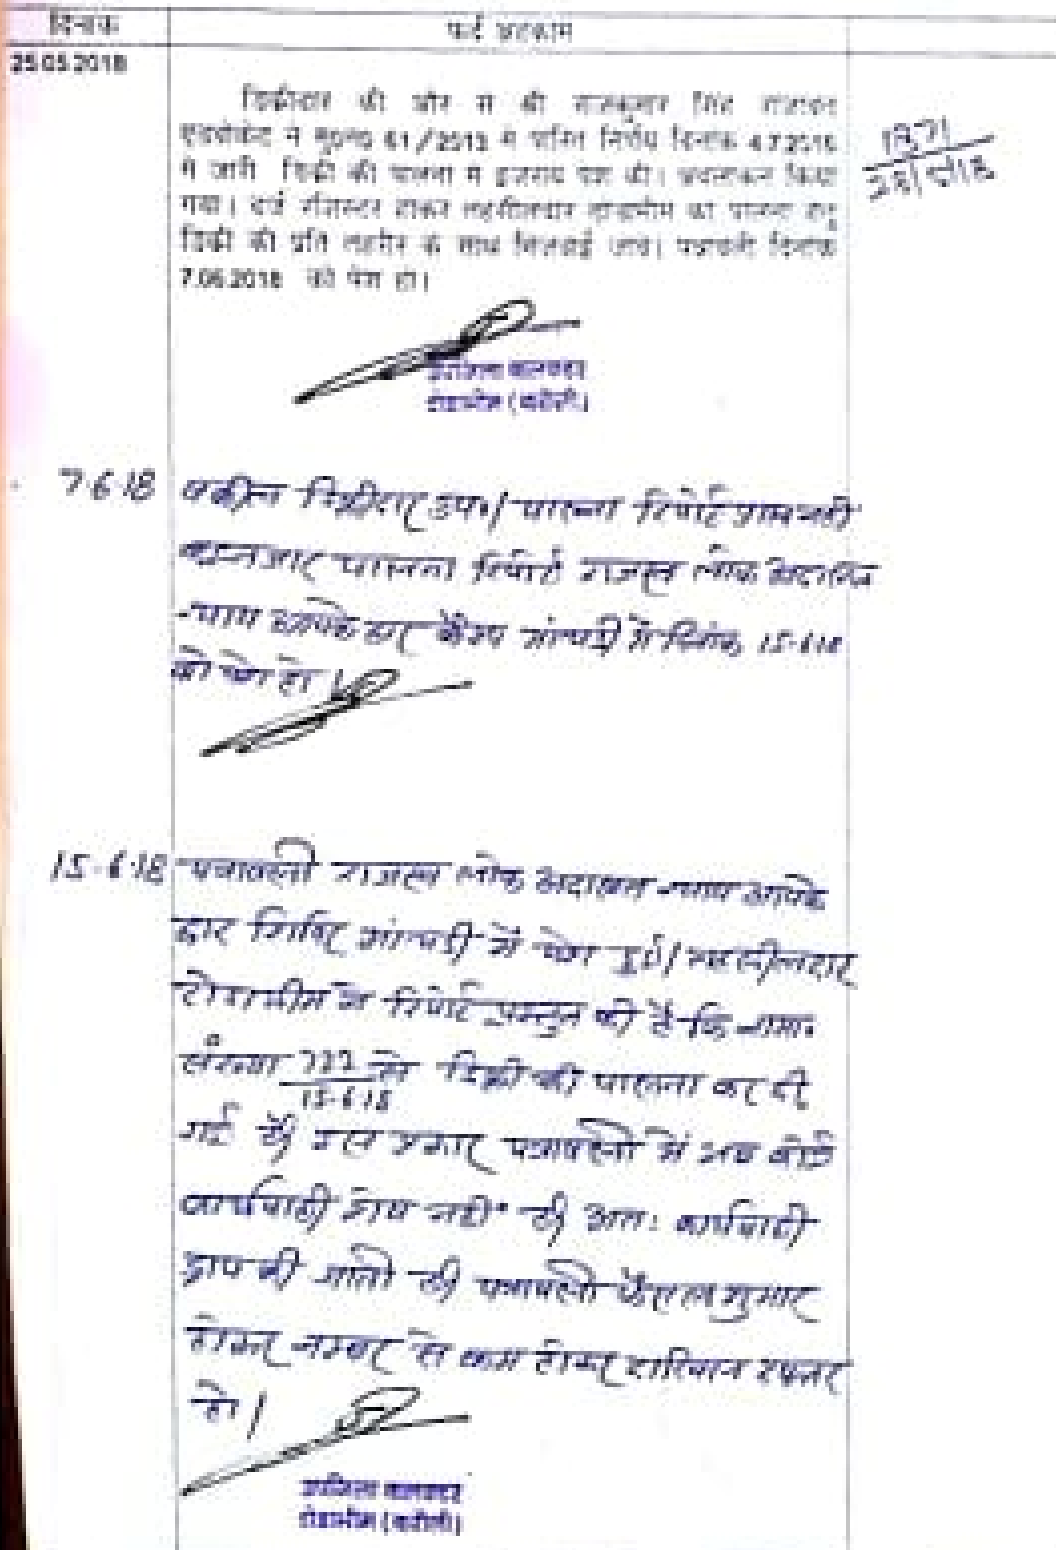 दिनांक
फर्द अहकाम
25.05.2018
डिक्रीदार की ओर से श्री राजकुमार सिंह राजावत
एडवोकेट ने मु0न0 61/2013 में पारित निर्णय दिनांक 4.7.2016
में जारी डिक्री की पालना में इजराय पेश की। अवलोकन किया
गया। दर्ज रजिस्टर होकर तहसीलदार टोडाभीम को पालना हेतु
डिक्री की प्रति तहरीर के साथ भिजवाई जावे। पत्रावली दिनांक
7.06.2018 को पेश हो।
1371
28/5/18
उपजिला कलक्टर
टोडाभीम (करौली)
7.6.18 वकील डिक्रीदार उप०/ पालना रिपोर्ट प्राप्त नहीं
इन्तजार पालना रिपोर्ट राजस्व लोक अदालत
न्याय आपके द्वार कैम्प में दिनांक 15-6-18
को पेश हो।
15-6-18 पत्रावली राजस्व लोक अदालत न्याय आपके
द्वार शिविर में पेश हुई/ तहसीलदार
टोडाभीम ने रिपोर्ट प्रस्तुत की है कि नामा०
संख्या 15-6-18 से डिक्री की पालना कर दी
गई है। इस प्रकार पत्रावली में अब कोई
कार्यवाही शेष नहीं है। अतः कार्यवाही
ड्राप की जाती है। पत्रावली फैसल शुमार
होकर नम्बर से कम होकर दाखिल दफ्तर
हो।
उपजिला कलक्टर
टोडाभीम (करौली)